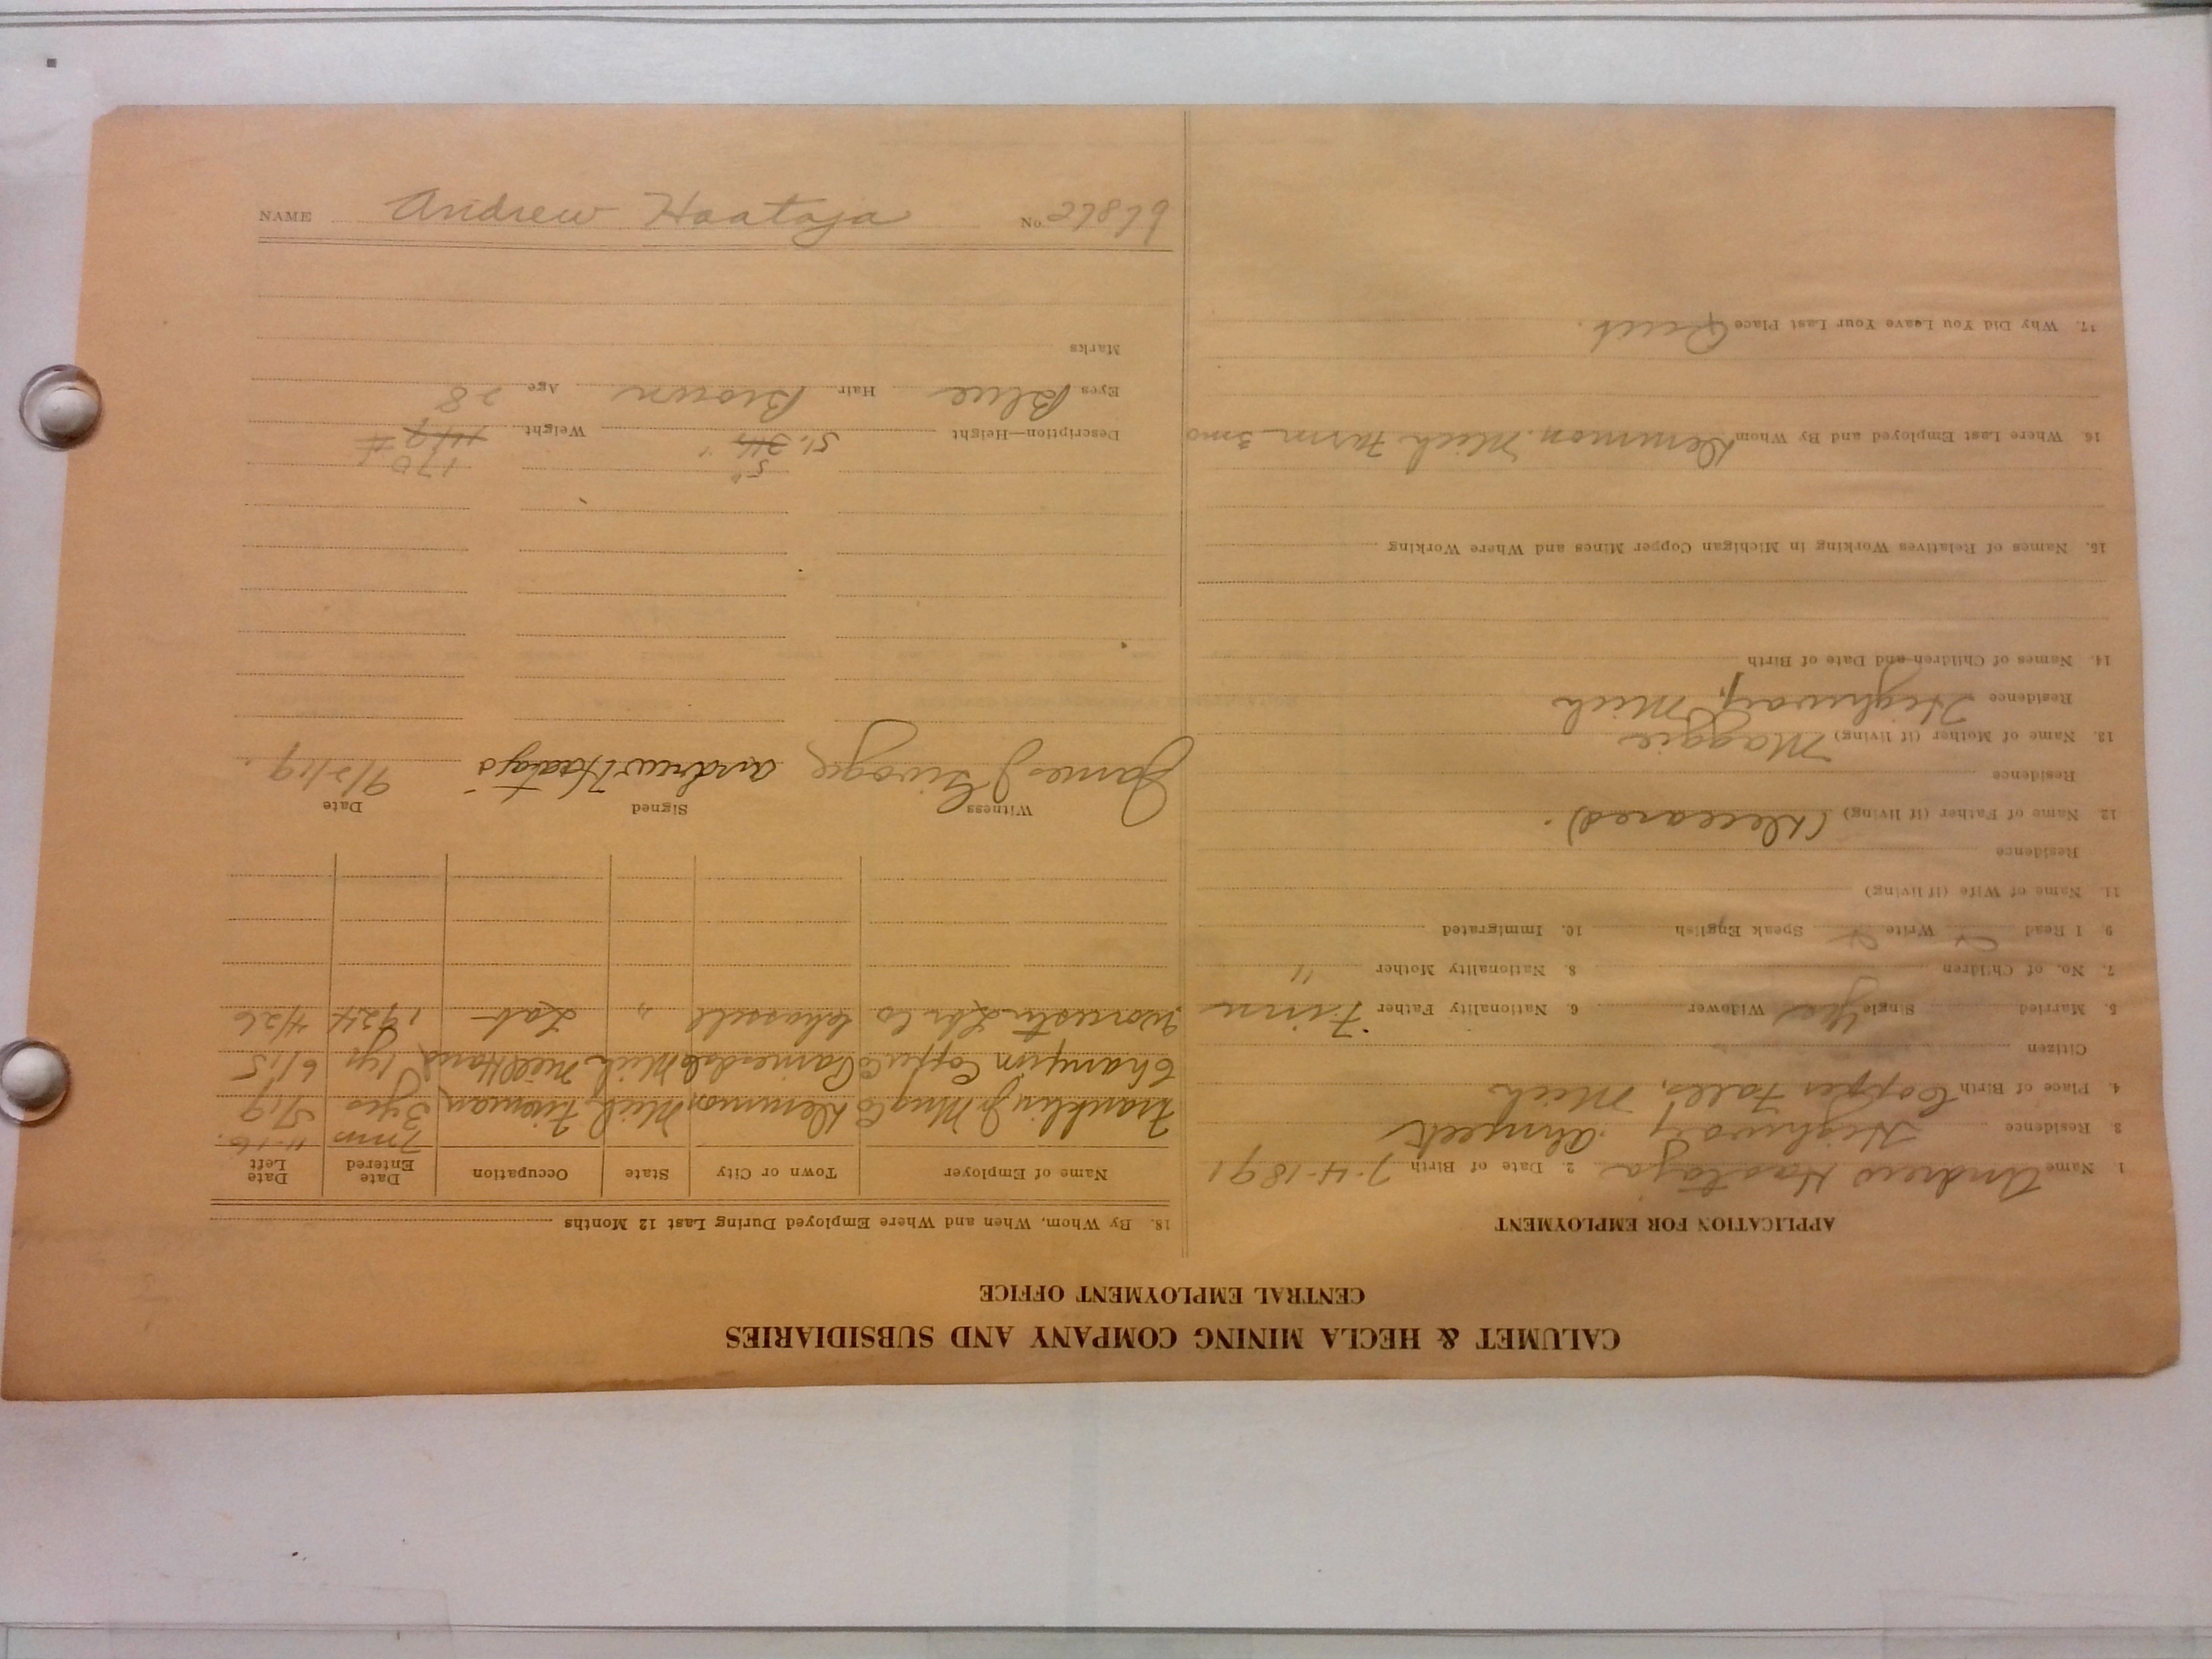 CALUMET & HECLA MINING COMPANY AND SUBSIDIARIES
CENTRAL EMPLOYMENT OFFICE
APPLICATION FOR EMPLOYMENT
1. Name Andrew Haataja 2. Date of Birth 7-4-1891
3. Residence Highway
4. Place of Birth Copper Falls, Mich
Citizen
5. Married Single Yes Widower 6. Nationality Father Finn
7. No. of Children 8. Nationality Mother "
9. I Read Write Speak English 10. Immigrated
11. Name of Wife (if living)
Residence
12. Name of Father (if living) (Deceased).
Residence
13. Name of Mother (if living) Maggie
Residence Highway, Mich
14. Names of Children and Date of Birth
15. Names of Relatives Working in Michigan Copper Mines and Where Working
16. Where Last Employed and By Whom Demmon Mich Farm 3 mo
17. Why Did You Leave Your Last Place Quit.
18. By Whom, When and Where Employed During Last 12 Months
Name of Employer Town or City State Occupation Date Entered Date Left
7 mos 11-16.
Franklin Jr Mng Co Demmon Mich Fireman 3 yrs 5/19
Champion Copper Co Painesdale Mich Mill Hand 1 yr 6/15
Worcester Lbr Co Chassell " Lab 1924 4/26
Witness Signed Date
James J Andrew Haataja 9/2/19.
5" 170 #
Description—Height 5' Weight 149
Eyes Blue Hair Brown Age 28
Marks
NAME Andrew Haataja No. 27879